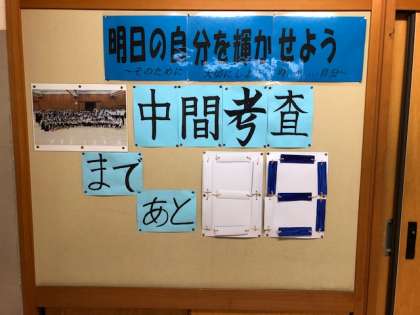 明日の自分を輝かせよう
～そのために 大切にしよう
中間考査
まで
あと